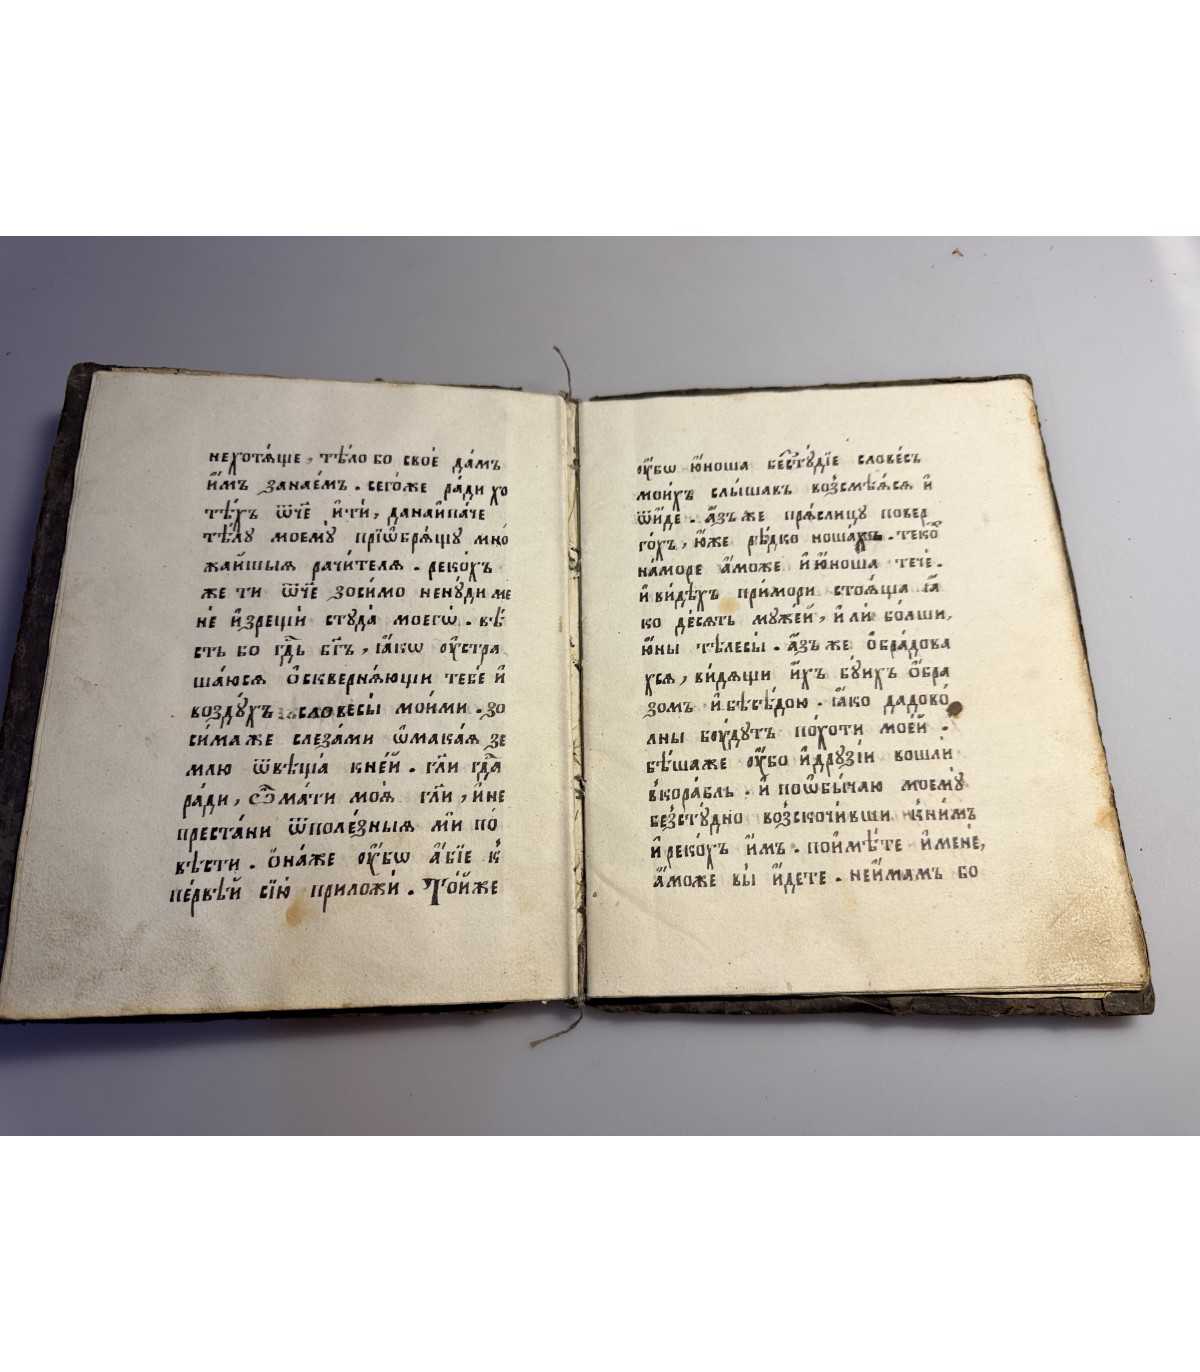 нехотѧ́ще, тѣ́ло бо своѐ да́мъ
и҆̀мъ занае́мъ. сего́же ра́ди хо
тѣ́хъ ѿч҃е и҆тѝ, данаи́паче
тѣ́лу моемꙋ̀ прїѡбрѧ́щу мно́
жаишыѧ рачи́телѧ. реко́хъ
же ти ѿч҃е зоси́мо ненꙋ́ди ме
нѐ и҆зрещѝ стꙋда̀ моегѡ̀. вѣ́
сть бо гд҃ь бг҃ъ, ꙗ҆́кѡ оу҆стра
ша́юсѧ ѻ҆сквернѧ́ющи тебѐ и҆
возду́хъ словесы̀ мои́ми. зо
си́ма же слеза́ми ѡ҆мака́ѧ зе
млю ѿвѣща̀ кне́й. гл҃и гд҃а
ра́ди, ѽ ма́ти моѧ̀ гл҃и, и҆ не
преста́ни ѿполе́зныѧ мѝ по́
вѣсти. ѻ҆на́же оу҆́бѡ а҆́бїе к̾
пе́рвѣй сїю̀ приложѝ. То́йже
оу҆́бѡ ю҆́ноша безстꙋ́дїе слове́съ
мои́хъ слы́шавъ возсмѣѧ́сѧ и҆
ѿи́де. а҆́зъ же прѧ́слицу повер
го́хъ, ю҆́же рѣ́дко ноша́хъ. теко́х
на́море а҆́може и҆ ю҆́ноша течѐ.
и҆ ви́дѣхъ при́мори стоѧ́ща ꙗ҆́
ко де́сѧть муже́й, и҆ лѝ бо́лши,
ю҆́ны тѣлесы̀. а҆́зъ же ѻ҆бра́дова
хсѧ, ви́дѧщи и҆́хъ бу́ихъ ѻ҆́бра
зомъ и҆ бѣсѣ́дою. ꙗ҆́ко да дово́
лны бꙋ́дутъ по́хоти мое́й.
бѣ́ша же оу҆́бо и҆ дрꙋзі́и вошли
вкора́бль. и҆ поѡбы́чаю моемꙋ̀
безстꙋ́дно возскочи́вши к̾ни́мъ
и҆ реко́хъ и҆̀мъ. пои́мѣте и҆ менѐ,
а҆́може вы̀ и҆́дете. неи́мамъ бо